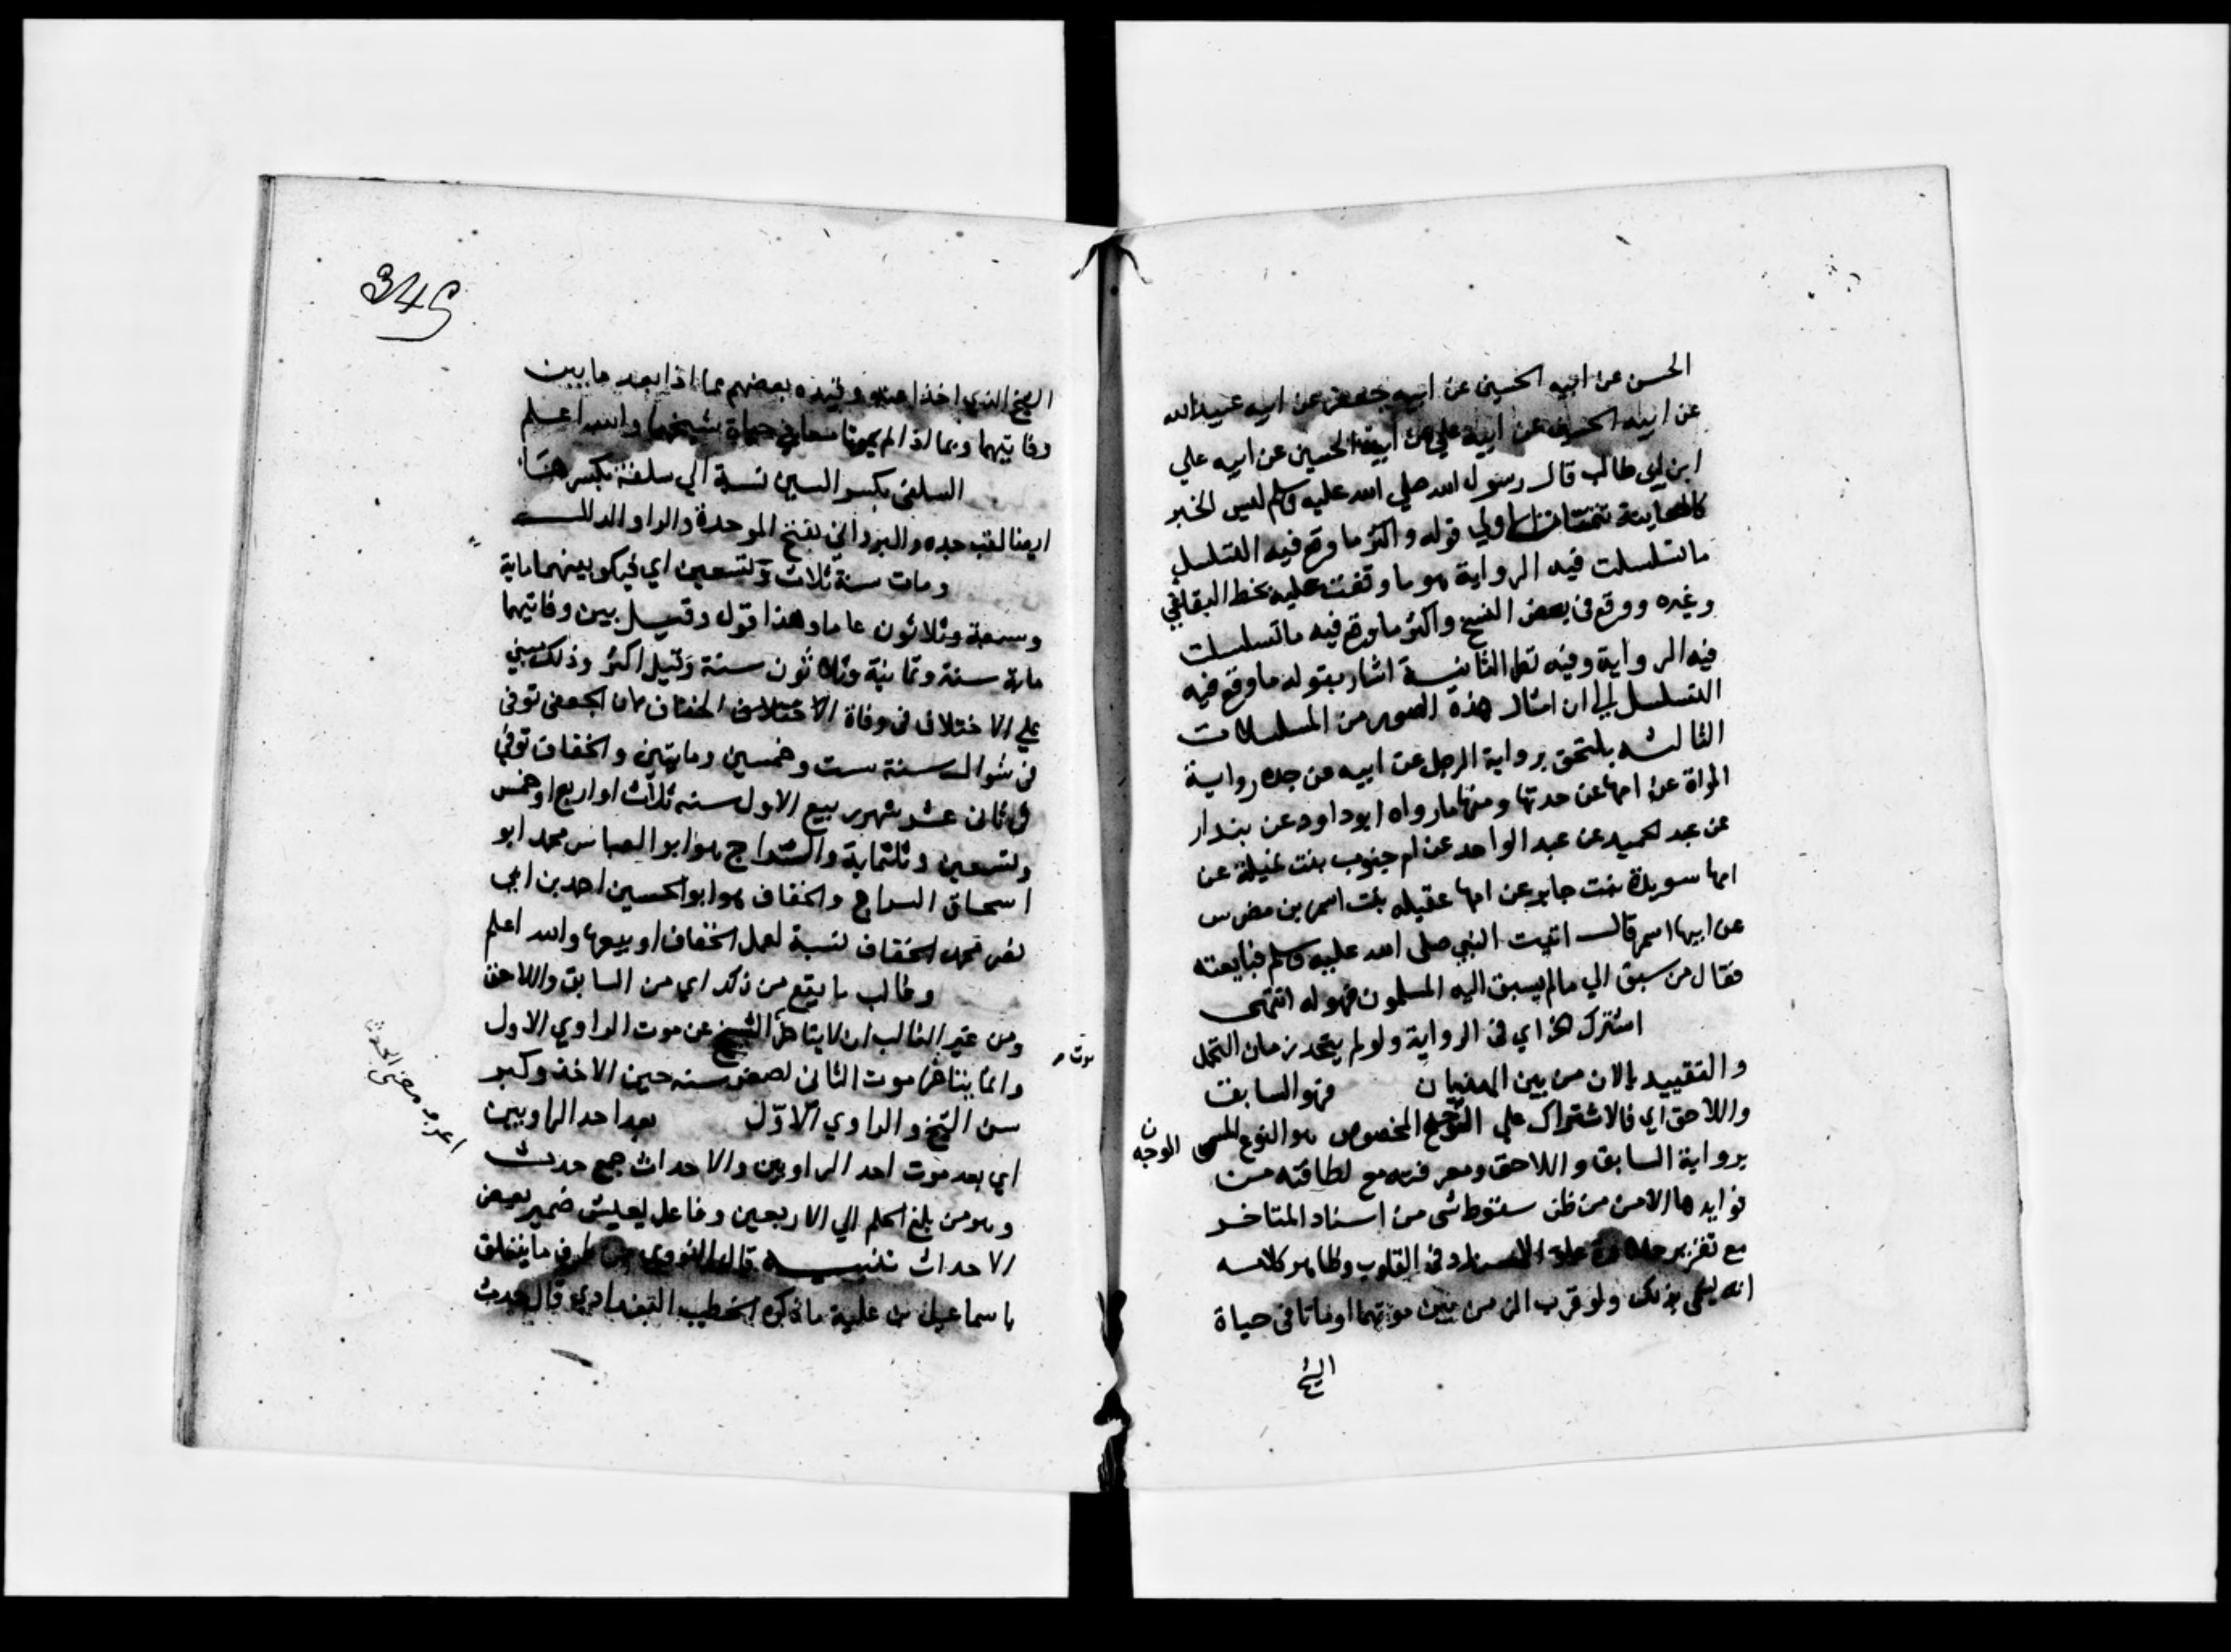 الحسن عن ابيه الحسين عن ابيه جعفر عن ابيه عبيد الله
عن ابيه الحسين عن ابيه علي عن ابيه الحسين عن ابيه علي
ابن ابي طالب قال رسول الله صلي الله عليه وسلم ليس الخبر
كالمعاينة الاولي قوله واكثر ما وقع فيه التسلسل
ما تسلسلت فيه الرواية هو ما وقفت عليه بخط البقاعي
وغيره ووقع في بعض النسخ واكثر ما وقع فيه ما تسلسلت
فيه الرواية وفيه الثانية اشار بقوله ما وقع فيه
التسلسل الي ان امثال هذة الصور من المسلسلات
الثالثه يلتحق برواية الرجل عن ابيه عن جده رواية
المراة عن امها عن جدتها ومنها ما رواه ابوداود عن بندار
عن عبد الحميد عن عبد الواحد عن ام جنوب بنت نميلة عن
امها سويدة بنت جابر عن امها عقيله بنت اسمر بن مضرس
عن ابيها اسمر قال اتيت النبي صلي الله عليه وسلم فبايعته
فقال من سبق الي ما لم يسبق اليه المسلمون فهو له انتهى
اشترك الخ اي في الرواية ولو لم يتحد زمان التحمل
والتقييد بالاثنين من بين فهو السابق
واللاحق اي فالاشتراك علي المخصوص هو النوع المسمى
الوجه
برواية السابق واللاحق ومعرفته مع لطافته من
فوايدها الامن من ظن سقوط شي من اسناد المتاخر
مع تقرير حلاوة علو الاسناد في القلوب وظاهر كلامه
انه يسمى بذلك ولو قرب الزمن بين موتهما او ماتا في حياة
الشيخ
345
الشيخ الذي اخذا عنه وقيده بعضهم بما اذا بعد ما بين
وفاتيهما وبما اذا لم يموتا معا في حياة شيخهما والله اعلم
السلفي بكسر السين نسبة الي سلفة بكسرها
ايضا لقب جده والبرداني بفتح الموحدة والرا والدال
ومات سنة ثلاث وتسعين اي فيكون بينهما ماية
وسبعة وثلاثون عاما وهذا قول وقيل بين وفاتيهما
ماية سنة وثمانية وثلاثون سنة وقيل اكثر وذلك مبني
علي الاختلاف في وفاة الخفاف فان الجعفي توفي
في شوال سنة ست وخمسين ومايتين والخفاف توفي
في ثاني عشر شهر ربيع الاول سنه ثلاث او اربع او خمس
وتسعين وثلثماية والسراج هو ابو العباس محمد ابو
اسحاق السراج والخفاف هو ابو الحسين احمد بن ابي
نصر محمد الخفاف نسبة لعمل الخفاف او بيعها والله اعلم
وغالب ما يقع من ذلك اي من السابق واللاحق
ومن غير الغالب ان لا يتاخر الشيخ عن موت الراوي الاول
موت
وانما يتاخر موت الثاني لصغر سنه حين الاخذ وكبر
سن الشيخ والراوي الاول بعد احد الراويين
اي بعد موت احد الراويين والاحداث جمع حدث
وهو من بلغ الحلم الي الاربعين وفاعل يعيش ضمير بعض
الاحداث تنبيه قال النووي من طرف ما يتعلق
باسماعيل بن علية ما ذكره الخطيب البغدادي قال حدث
اعرف معنى الحدث